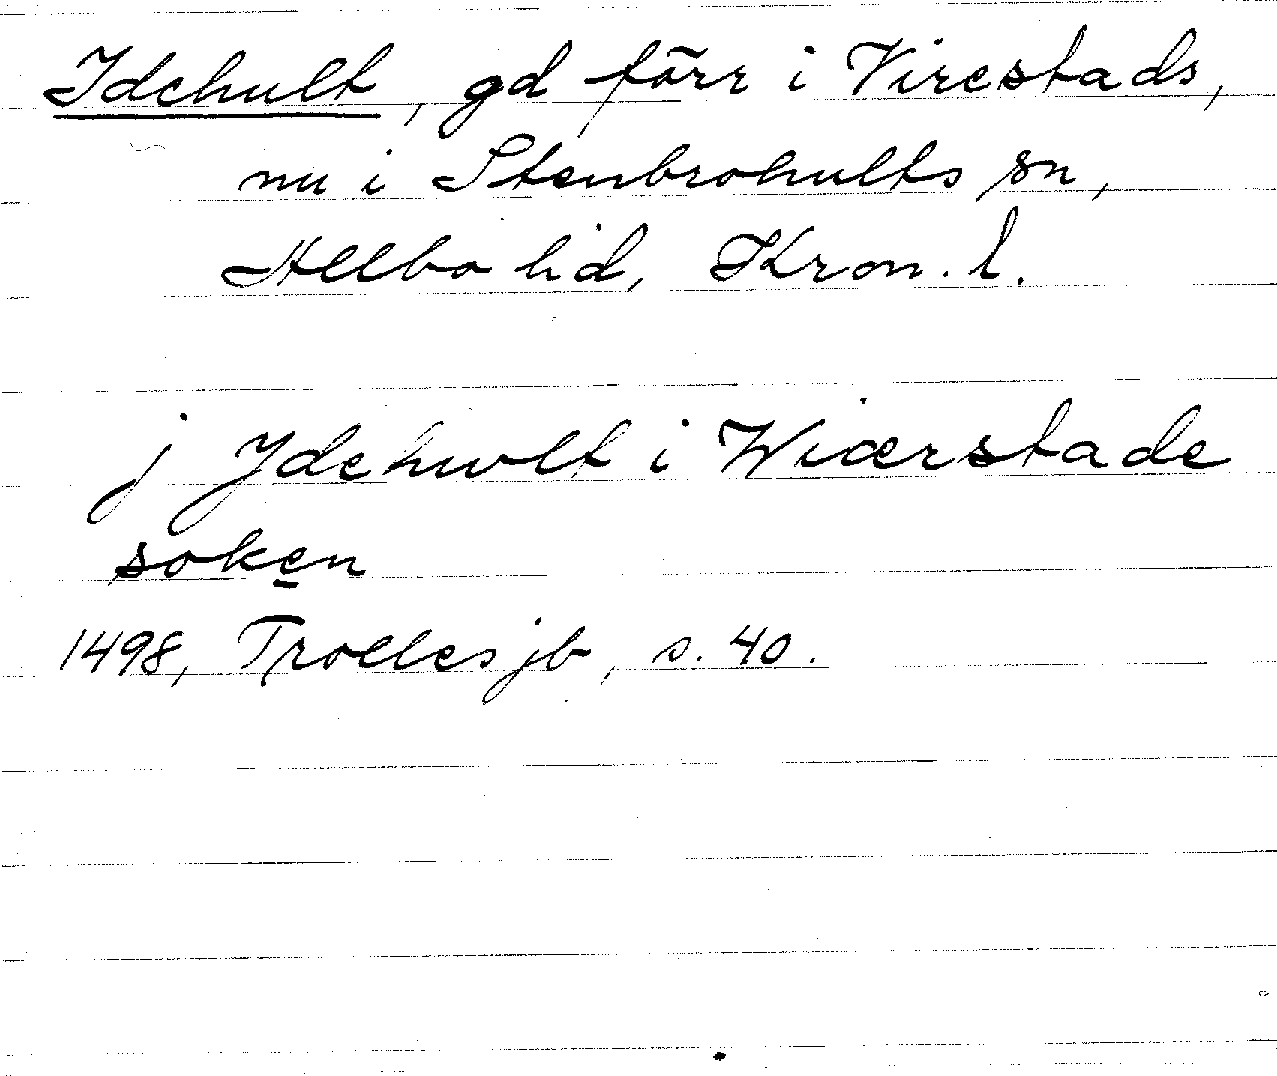 Idehult, gd förr i Virestads,
nu i Stenbrohults sn,
Allbo hd, Kron. l.
j Jdehwlt i Wiærstade
soken
1498, Trolles jb, s. 40.